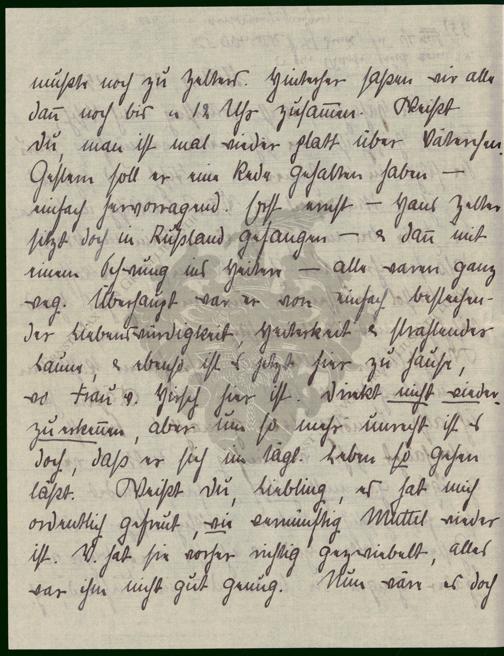 mußte noch zu Zelters. Hinterher saßen wir alle
dan̄ noch bis n 12 Uhr zusam̄en. Weißt
Du, man ist mal wieder platt über Väterchen
Gestern soll er eine Rede gehalten haben —
einfach hervorragend. Erst ernst — Hans Zelter
sitzt doch in Rußland gefangen — & dan̄ mit
einem Schwung ins Heitere — alle waren ganz
weg. Überhaupt war er von einfach bestechen-
der Liebenswürdigkeit, Heiterkeit & strahlender
Laune, & ebenso ist es jetzt hier zu Hause,
wo Frau v. Hirsch hier ist. Direkt nicht wieder
zu erken̄en, aber um so mehr unrecht ist es
doch, daß er sich im tägl. Leben so gehen
läßt. Weißt Du, Liebling, es hat mich
ordentlich gefreut, wie vernünftig Muttel wieder
ist. V. hat sie vorher richtig gezwiebelt, alles
war ihm nicht gut genug. Nun wäre es doch